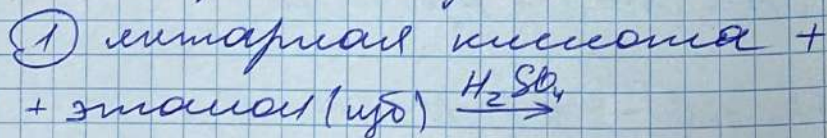 ① янтарная кислота +
+ этанол (изб) H₂SO₄ →